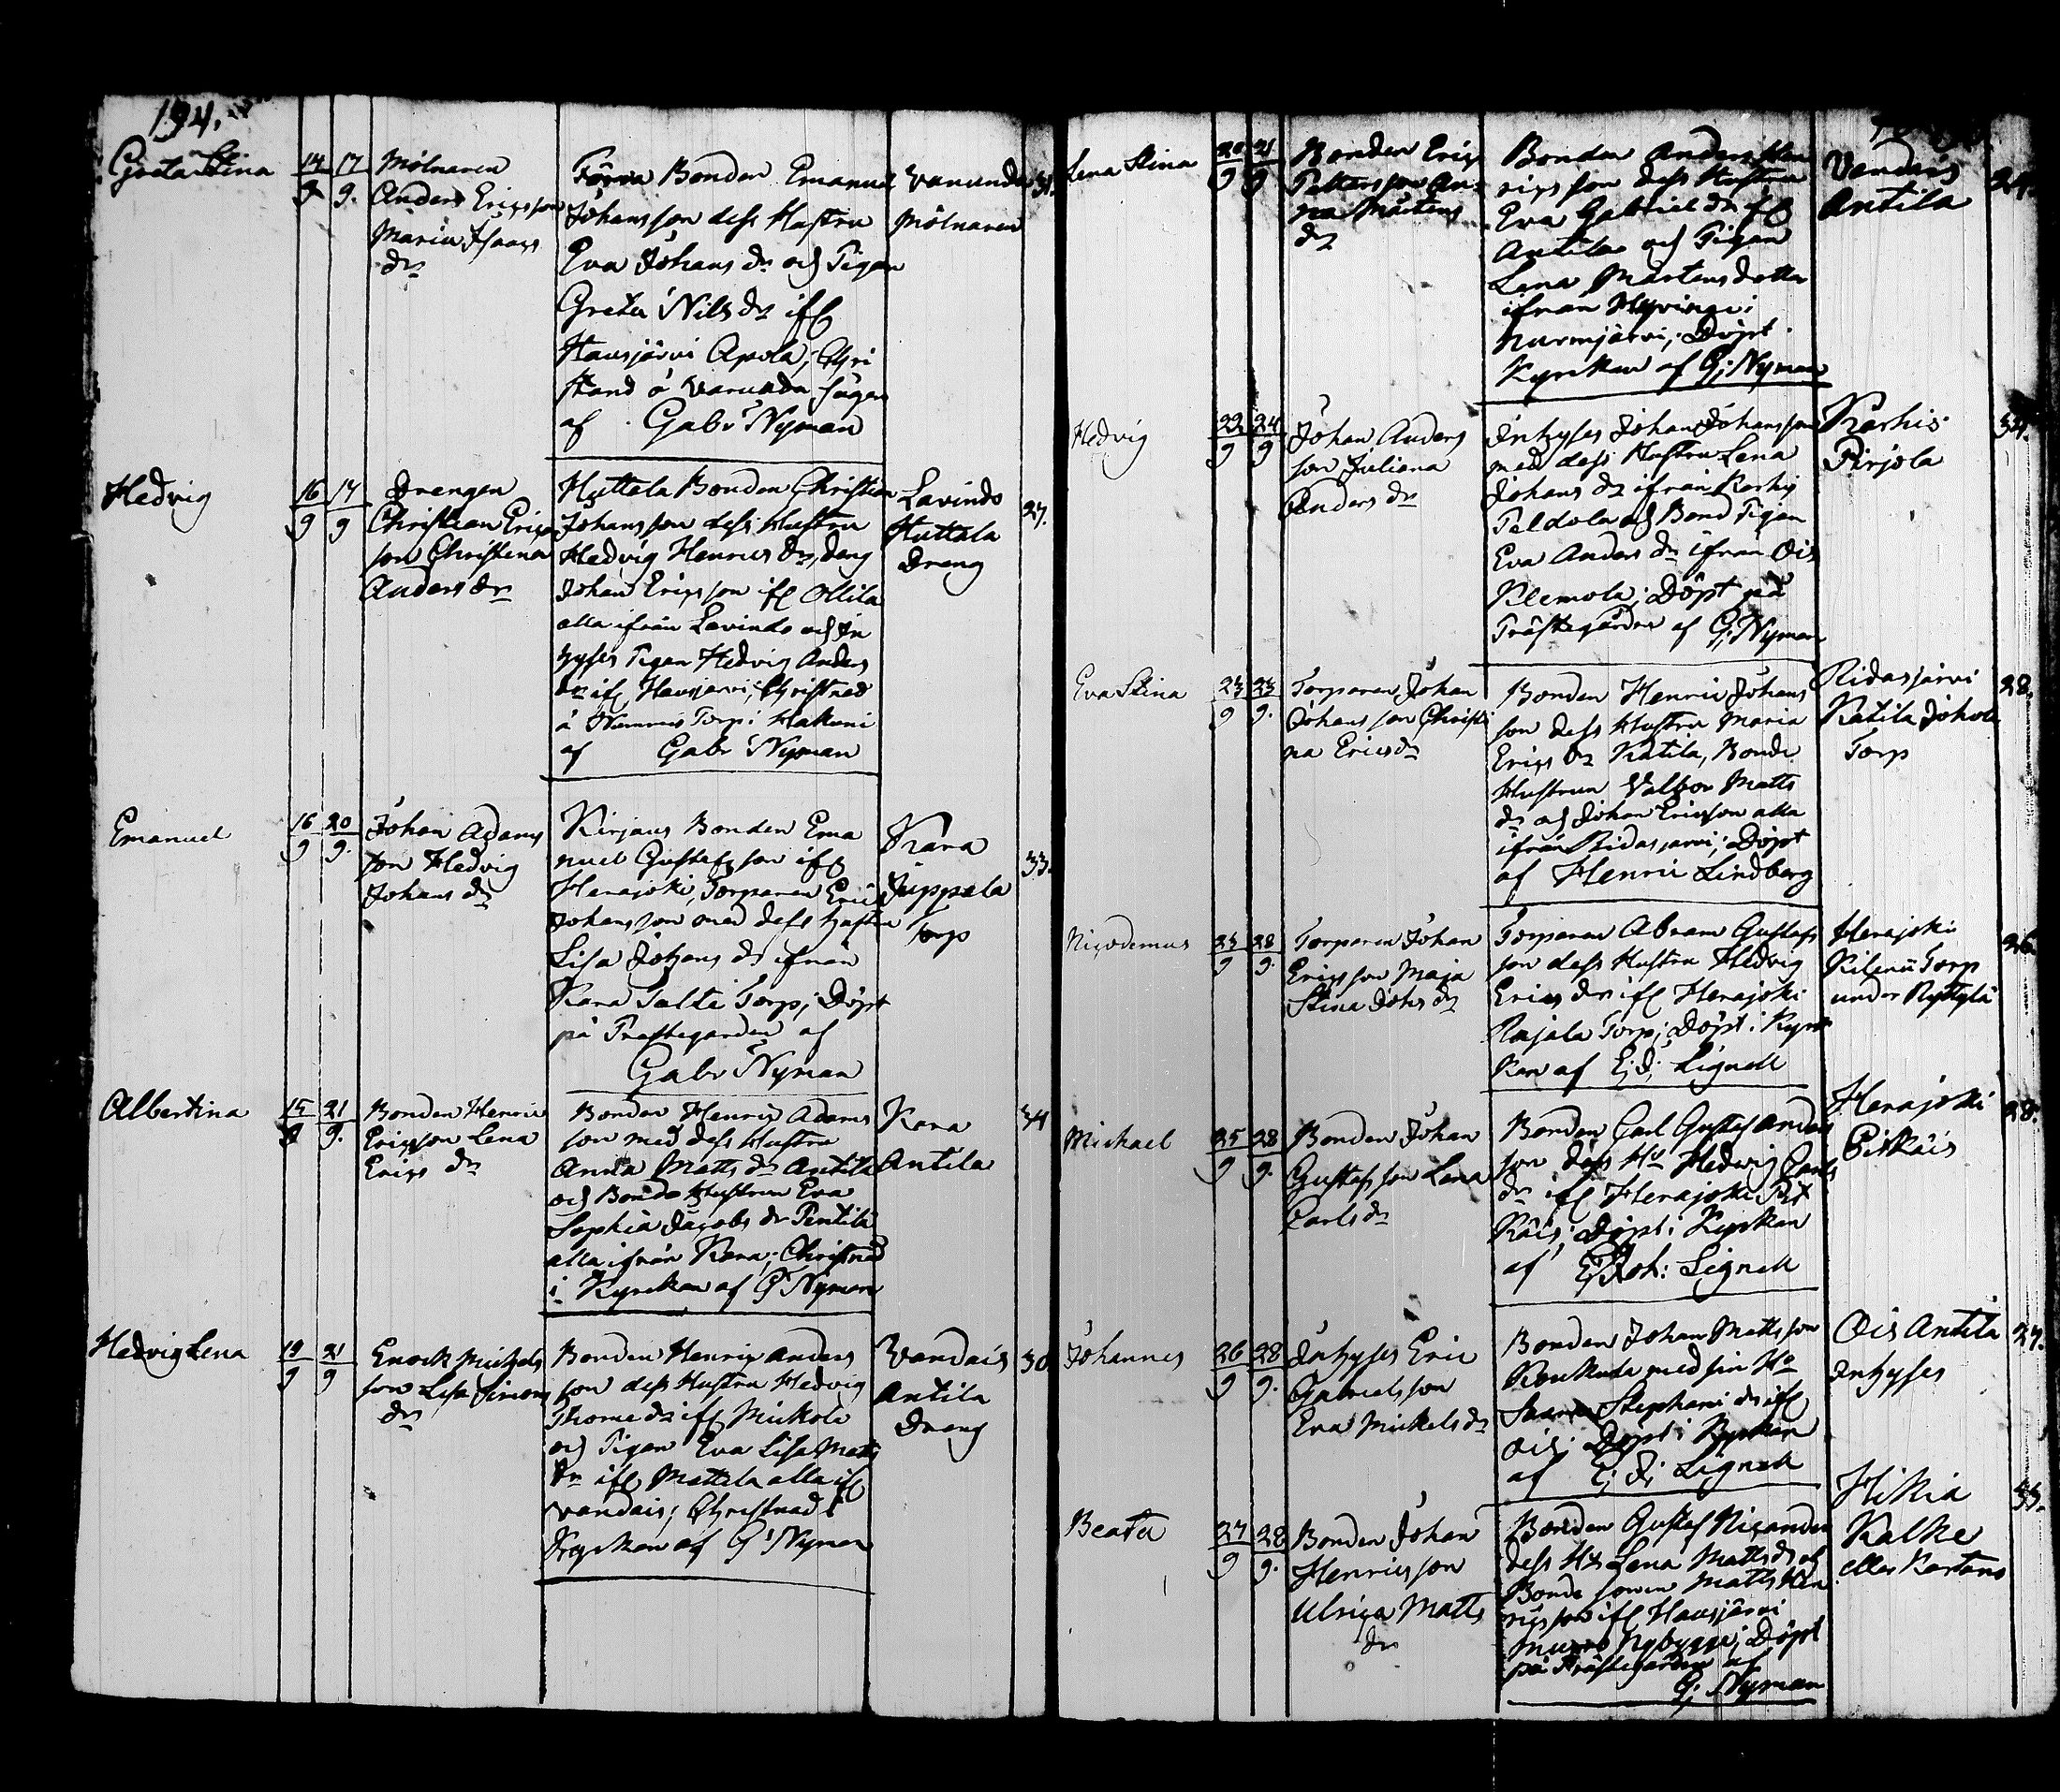 194.
Greta Stina
14 17
9 9.
Mölnaren
Anders Ericsson
Maria Isaacs
dr
Bonden Emanuel
Johansson dess Hustru
Eva Johans dr och Pigan
Greta Nils dr ifr
Hausjärvi Apola; Chri
af Gabr Nyman
Mölnaren
31.
Hedvig
16 17
9 9
Drengen
Christian Erics
son Christina
Anders dr
Huttala Bonden Christian
Johansson dess Hustru
Hedvig Henrics dr, dreng
Johan Ericsson ifr Ollila
alla ifrån Lavindo och In
hyses Pigan Hedvig Anders
dr ifr Hausjervi; Christnad
å Torp i Hakuni
af Gabr Nyman
Lavindo
Huttala
Dreng
27.
Emanuel
16 20
9 9.
Johan Adams
son Hedvig
Johans dr
Kirjaus Bonden Ema
nuel Gustafsson ifr
Herajoki, Torparen Eric
Johansson med dess hustru
Lisa Johans dr ifrån
Kara Talti Torp; Döpt
på Prestegarden af
Gabr Nyman
Kara
Juppala
Torp
33.
Albertina
15 21
9 9.
Bonden Henric
Ericsson Lena
Erics dr
Bonden Henric Adams
son med dess Hustru
Anna Matts dr Antila
och Bonde Hustrun Eva
Sophia Jacobs dr Pentilä
alla ifrån Kara; Christnad
i Kyrckan af G Nyman
Kara
Antila
34
Hedvig Lena
19 21
9 9
Enock Michels
son Lisa Simons
dr
Bonden Henric Anders
son dess Hustru Hedvig
Thome dr ifr Mickola
och Pigan Eva Lisa Matts
dr ifr Mattila alla ifr
Vandais; Christnad i
Kyrckan af G Nyman
Vandais
Antila
Dreng
30
Lena Stina
20 21
9 9
Bonden Eric
Pettersson An
na Mårtens
dr
Bonden Anders Hen
rics son dess Hustru
Eva Gabriels dr ifr
Antila och Pigan
Lena Mårtens dotter
ifrån Hyvinge i
Nurmijärvi; Döpt i
Kyrckan af G: Nyman
Vandais
Antila
24.
Hedvig
22 24
9 9
Johan Anders
son Juliana
Anders dr
Inhyses Johan Johansson
med dess Hustru Lena
Johans dr ifrån Karhis
Peldola och Bond Pigan
Eva Anders dr ifrån Ois
Klemola; Döpt på
Prästegården af G: Nyman
Karhis
Pirjola
34.
Eva Stina
23 23
9 9.
Torparen Johan
Johans son Christi
na Erics dr
Bonden Henric Johans
son dess Hustru Maria
Erics dr Katila, Bonde
Hustrun Valbor Matts
dr och Johan Ericsson alla
ifrån Ridasjärvi; Döpt
af Henric Lindberg
Ridasjärvi
Katila Johola
Torp
28.
Nicodemus
25 28
9 9.
Torparen Johan
Ericsson Maja
Stina Johs dr
Torparen Abram Gustafs
son dess Hustru Hedvig
Erics dr ifr Herajoki
Rajala Torp; Döpt i Kyrc
kan af E: J: Lignell
Herajoki
Torp
under Ryttylä
26.
Michael
25 28
9 9.
Bonden Johan
Gustafsson Lena
Carls dr
Bonden Carl Gustaf Anders
son dess Hu Hedvig Carls
dr ifr Herajoki Pit
käis; Döpt i Kyrckan
af E: Joh: Lignell
Herajoki
Pitkäis
28.
Johannes
26 28
9 9.
Inhyses Eric
Gabrielsson
Eva Mickels dr
Bonden Johan Mattsson
med sin Hu
Stephani dr ifr
Ois; Döpt i Kyrckan
af E: J: Lignell
Ois Antila
Inhyses
27.
Beata
27 28
9 9.
Bonden Johan
Henricsson
Ulrica Matts
dr
Bonden Gustaf Nicander
dess Hu Lena Matts dr och
Bonde sonen Matts Hen
ricsson ifr Hausjärvi
Nybygge; Döpt
på Prästegården af
G: Nyman
Hikia
Kalke
eller Kartano
33.